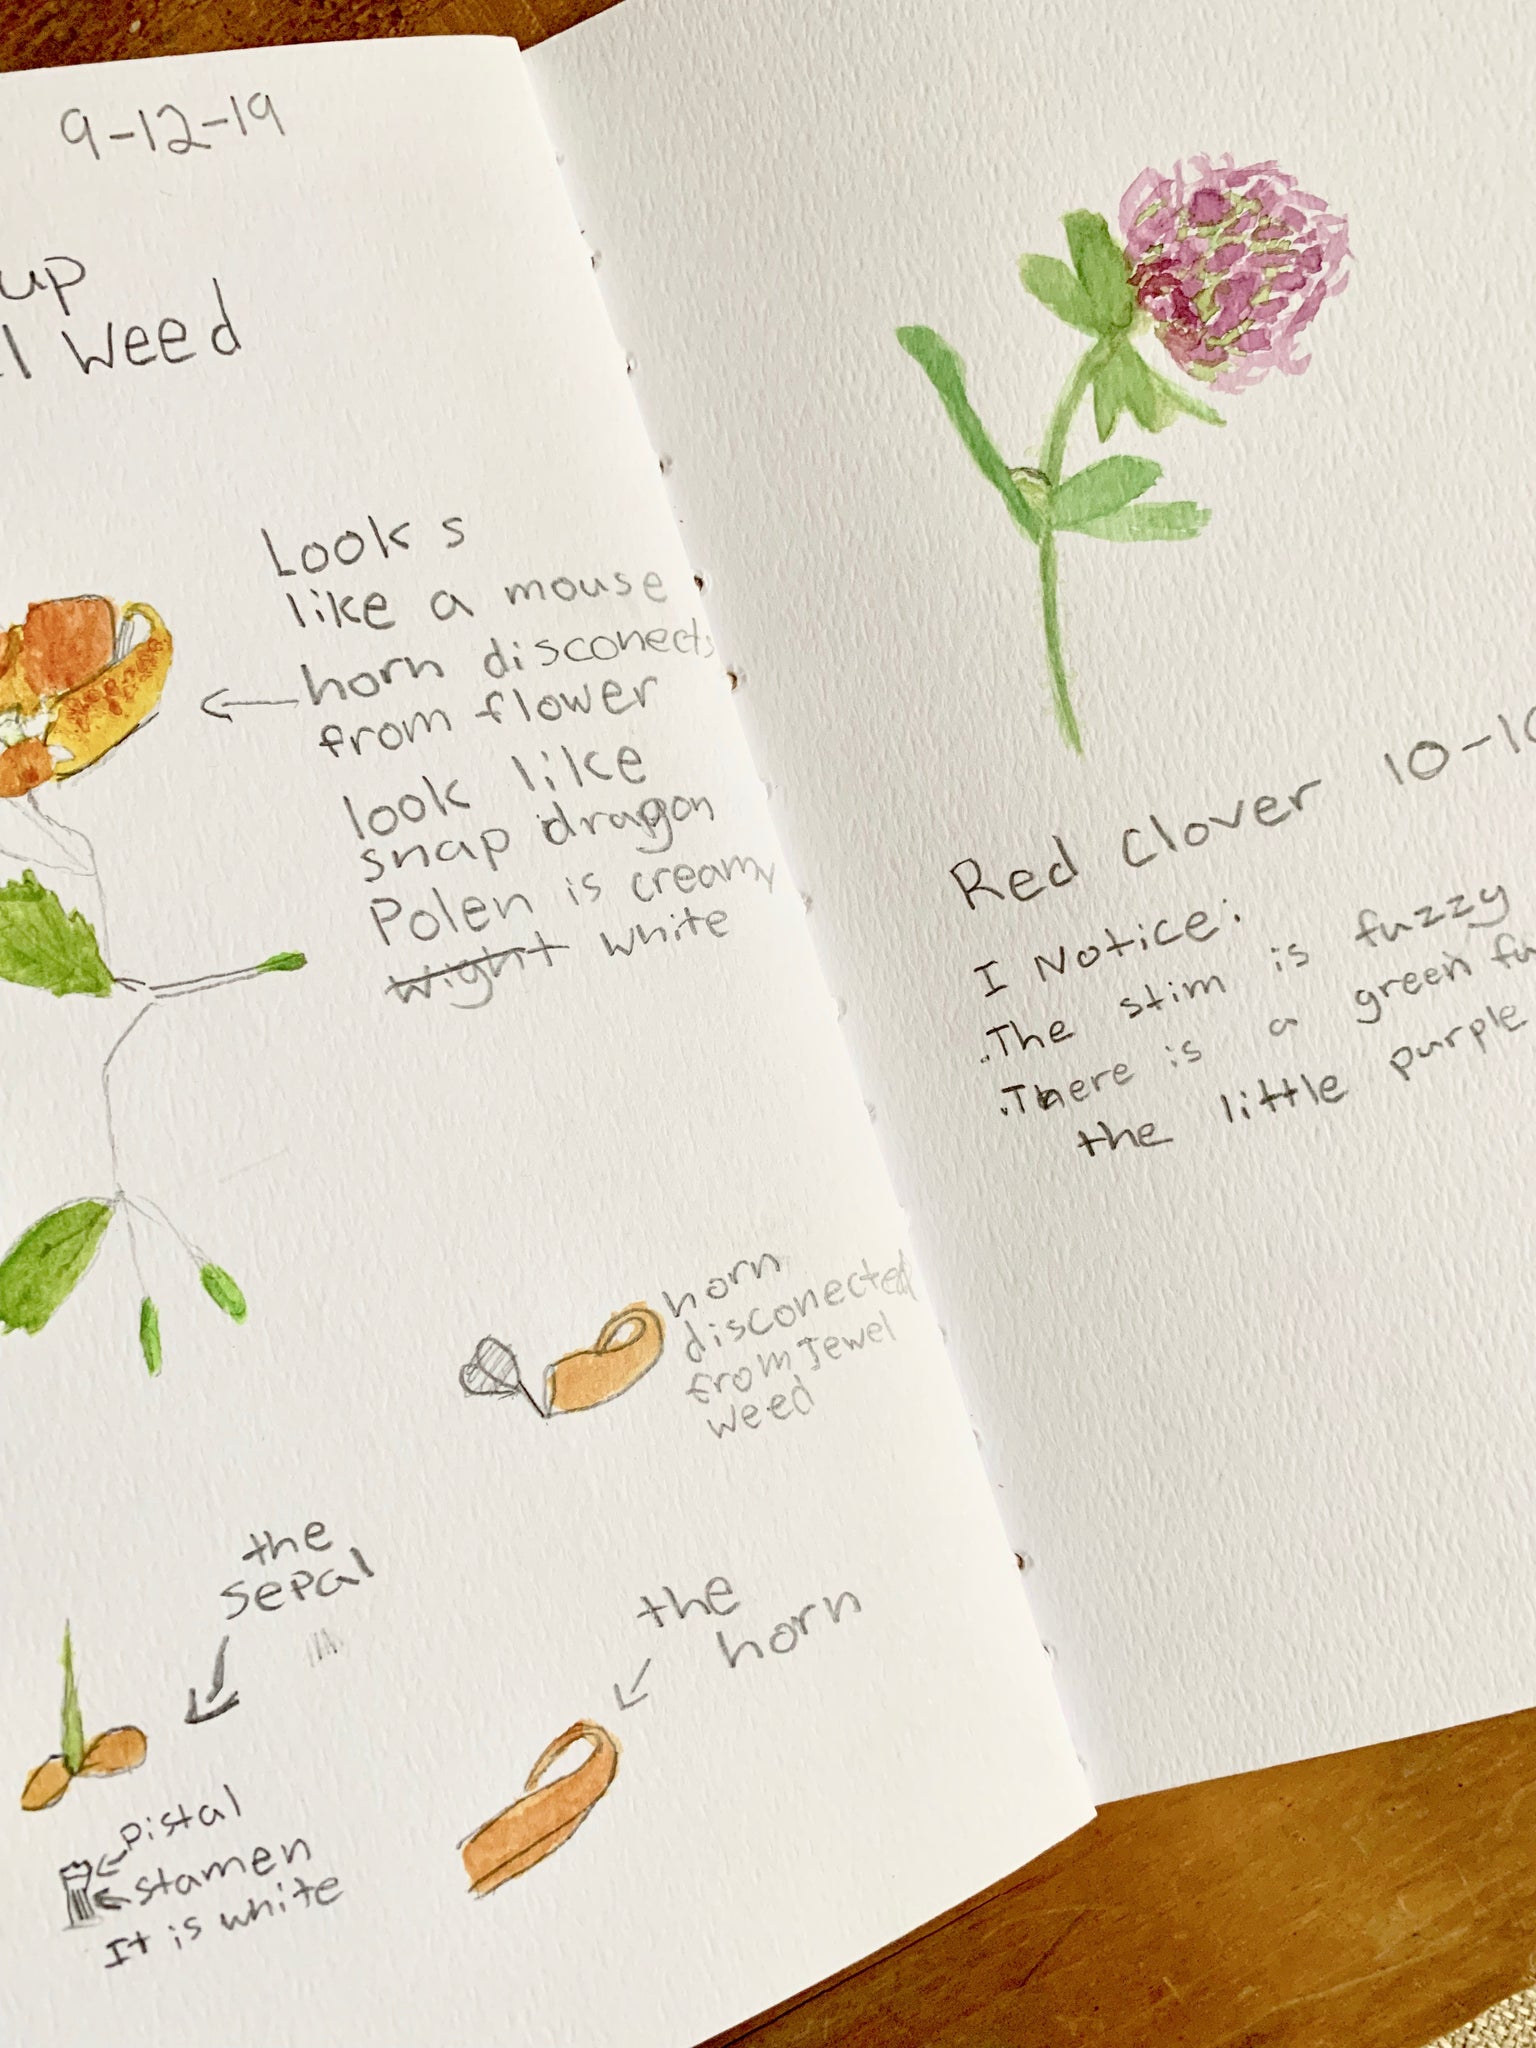 9-12-19
up
l weed
Looks
like a mouse
horn disconects
from flower
look like
snap dragon
Polen is creamy
wight white
horn
disconected
from Jewel
weed
the
sepal
the
horn
Pistal
stamen
It is white
Red Clover 10-10
I Notice:
.The stim is fuzzy
.There is a green fu
the little purple